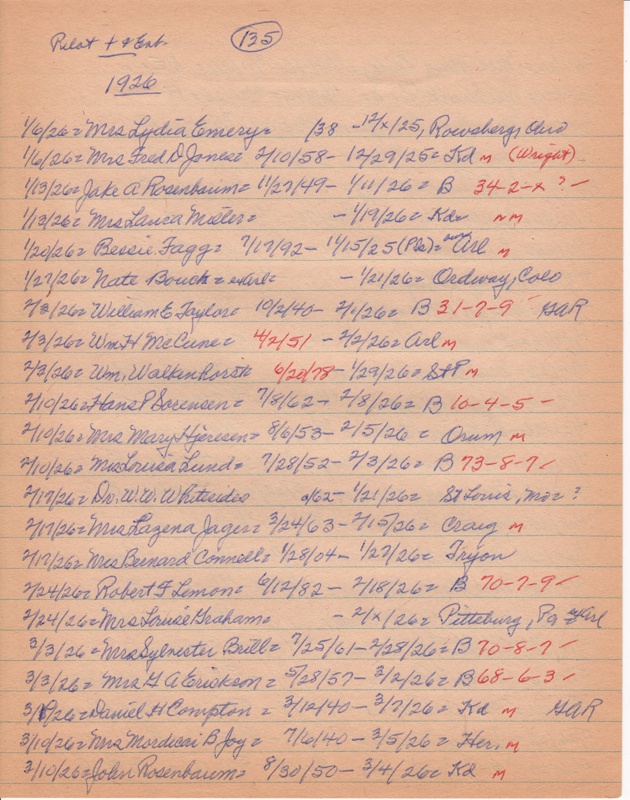 Pilot + & Ent. 135
1926
1/6/26 = Mrs Lydia Emery = /38 - 12/x/25, Rowsberg, Ohio
1/6/26 = Mrs Fred D Jones = 2/10/58 - 12/29/25 = Kd m (Wright)
1/13/26 = Jake A Rosenbaum = 11/27/49 - 1/11/26 = B 34-2-x ? -
1/13/26 = Mrs Laura = - 1/19/26 = Kd = nm
1/20/26 = Bessie Fagg = 7/17/92 - 11/15/25 (Pls) = Arl m
1/27/26 = Nate Bouck = exArl = - 1/21/26 = Ordway, Colo
2/3/26 = William E Taylor = 10/2/40 - 2/1/26 = B 31-7-9 GAR
2/3/26 = Wm H McCune = 4/2/51 - 2/2/26 = Arl m
2/3/26 = Wm. Walkenhorst 6/20/78 - 1/29/26 = St P m
2/10/26 = Hans P Sorensen = 7/8/62 - 2/8/26 = B 10-4-5 -
2/10/26 = Mrs Mary Hjeresen = 8/6/53 - 2/5/26 = Orum m
2/10/26 = Mrs Louisa Lund = 7/28/52 - 2/3/26 = B 73-8-7 -
2/17/26 = Dr. W.W. Whitesides /62 - 1/21/26 = St Louis, Mo = ?
2/17/26 = Mrs Lazena Jager = 3/24/63 - 2/15/26 = Craig m
2/17/26 = Mrs Bernard Connell = 1/28/04 - 1/27/26 = Tryon
2/24/26 = Robert F Lemon = 6/12/82 - 2/18/26 = B 70-7-9 -
2/24/26 = Mrs Louise Graham = - 2/x/26 = Pittsburg, Pa exArl
3/3/26 = Mrs Sylvester Brill = 7/25/61 - 2/28/26 = B 70-8-7 -
3/3/26 = Mrs G A Erickson = 5/28/57 - 3/2/26 = B 68-6-3 -
3/10/26 = Daniel H Compton = 3/12/40 - 3/7/26 = Kd m GAR
3/10/26 = Mrs Mordicai B Joy = 7/6/40 - 3/5/26 = Her. m
3/10/26 = John Rosenbaum = 8/30/50 - 3/4/26 = Kd m